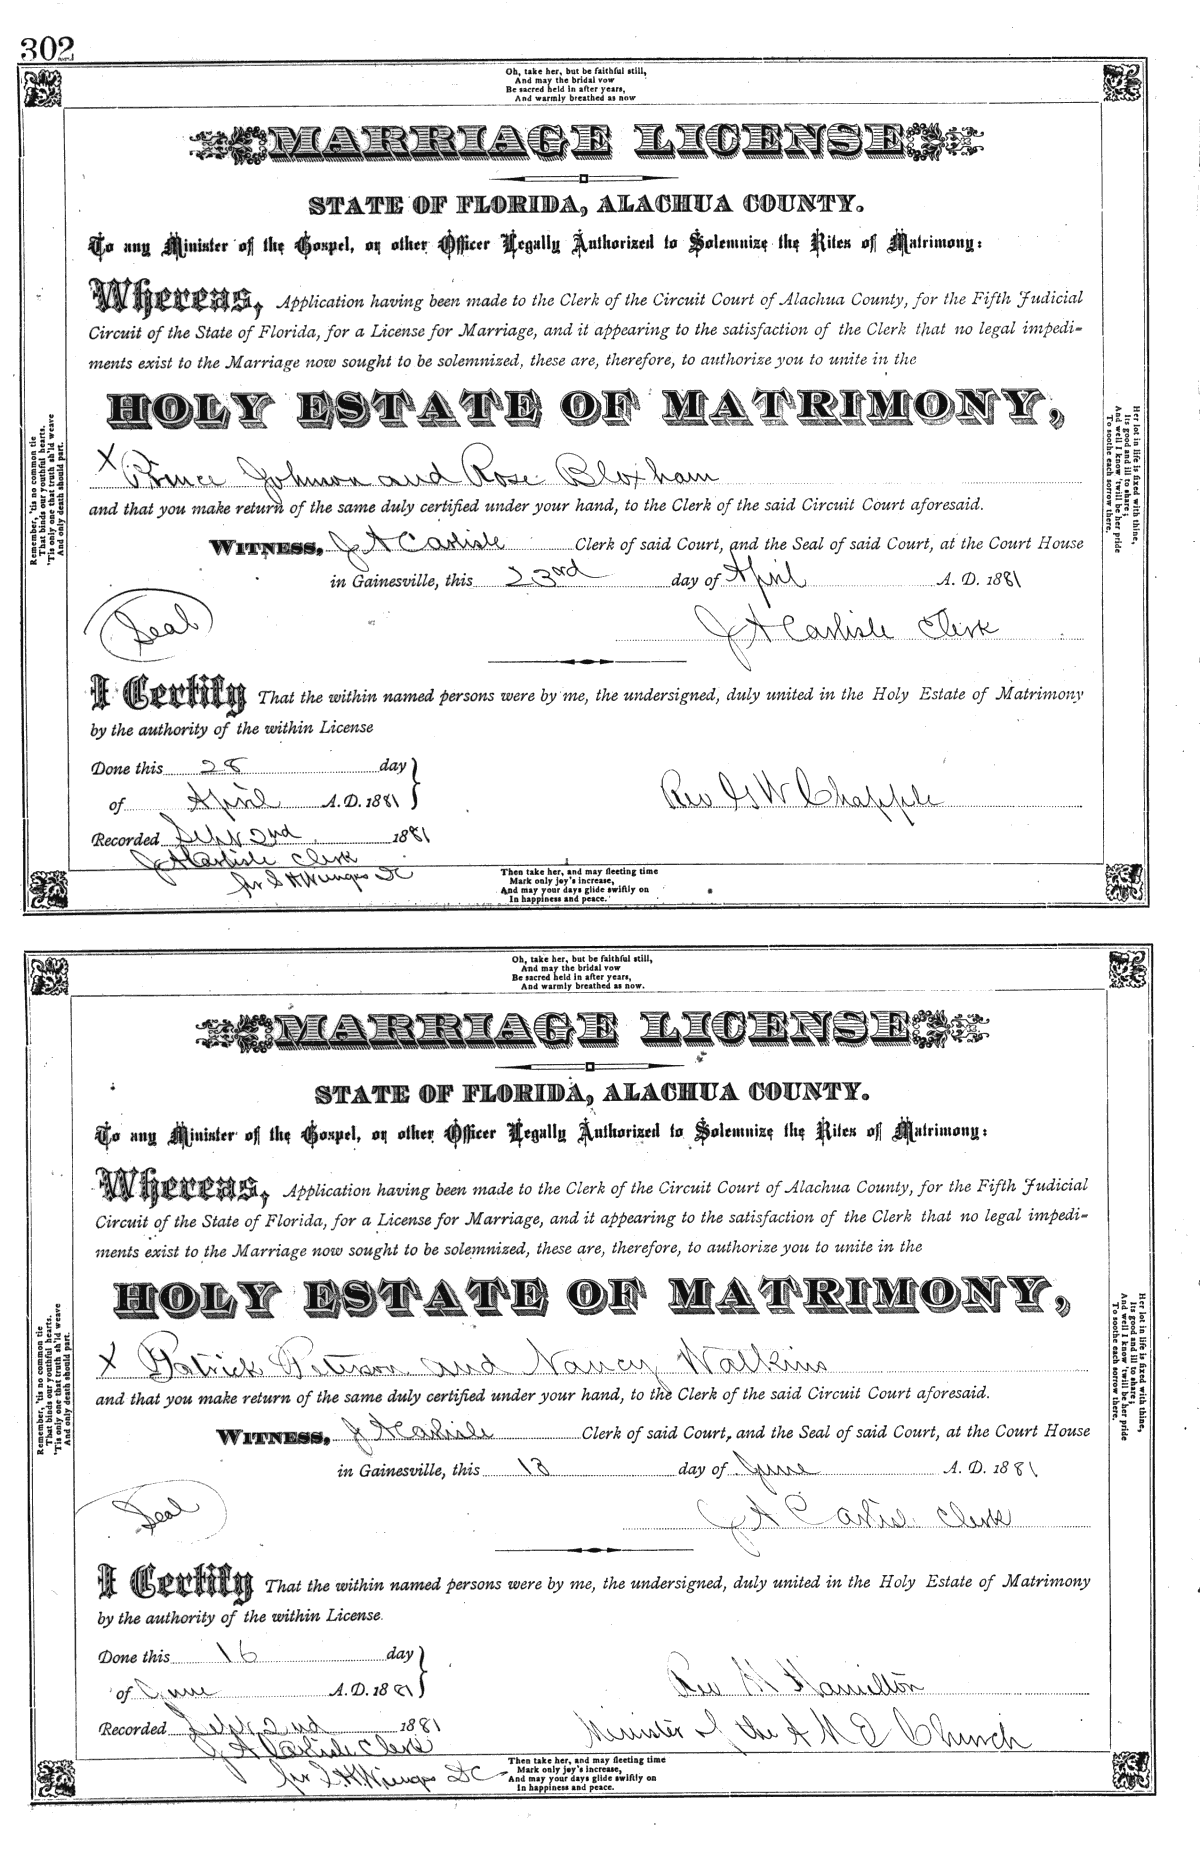 302
Oh, take her, but be faithful still,
And may the bridal vow
Be sacred held in after years,
And warmly breathed as now
MARRIAGE LICENSE
STATE OF FLORIDA, ALACHUA COUNTY.
To any Minister of the Gospel, or other Officer Legally Authorized to Solemnize the Rites of Matrimony:
Whereas, Application having been made to the Clerk of the Circuit Court of Alachua County, for the Fifth Judicial
Circuit of the State of Florida, for a License for Marriage, and it appearing to the satisfaction of the Clerk that no legal impedi-
ments exist to the Marriage now sought to be solemnized, these are, therefore, to authorize you to unite in the
HOLY ESTATE OF MATRIMONY,
X Prince Johnson and Rose Bloxham
and that you make return of the same duly certified under your hand, to the Clerk of the said Circuit Court aforesaid.
WITNESS, J A Carlisle Clerk of said Court, and the Seal of said Court, at the Court House
in Gainesville, this 23rd day of April A. D. 1881
Seal
J A Carlisle Clerk
I Certify That the within named persons were by me, the undersigned, duly united in the Holy Estate of Matrimony
by the authority of the within License
Done this 28 day
of April A.D. 1881
Rev G W Chapple
Recorded Sept 2nd 1881
J A Carlisle Clerk
Remember, 'tis no common tie
That binds our youthful hearts.
'Tis only one that truth sh'ld weave
And only death should part.
Her lot in life is fixed with thine,
Its good and ill to share;
And well I know 'twill be her pride
To soothe each sorrow there.
Then take her, and may fleeting time
Mark only joy's increase,
And may your days glide swiftly on
In happiness and peace.
Oh, take her, but be faithful still,
And may the bridal vow
Be sacred held in after years,
And warmly breathed as now.
MARRIAGE LICENSE
STATE OF FLORIDA, ALACHUA COUNTY.
To any Minister of the Gospel, or other Officer Legally Authorized to Solemnize the Rites of Matrimony:
Whereas, Application having been made to the Clerk of the Circuit Court of Alachua County, for the Fifth Judicial
Circuit of the State of Florida, for a License for Marriage, and it appearing to the satisfaction of the Clerk that no legal impedi-
ments exist to the Marriage now sought to be solemnized, these are, therefore, to authorize you to unite in the
HOLY ESTATE OF MATRIMONY,
X Patrick Peterson and Nancy Watkins
and that you make return of the same duly certified under your hand, to the Clerk of the said Circuit Court aforesaid.
WITNESS, J A Carlisle Clerk of said Court, and the Seal of said Court, at the Court House
in Gainesville, this 13 day of June A. D. 1881
Seal
J A Carlisle Clerk
I Certify That the within named persons were by me, the undersigned, duly united in the Holy Estate of Matrimony
by the authority of the within License.
Done this 16 day
of June A.D. 1881
Rev H Hamilton
Recorded Sept 2nd 1881
Minister of the A M E Church
J A Carlisle Clerk
Remember, 'tis no common tie
That binds our youthful hearts.
'Tis only one that truth sh'ld weave
And only death should part.
Her lot in life is fixed with thine,
Its good and ill to share;
And well I know 'twill be her pride
To soothe each sorrow there.
Then take her, and may fleeting time
Mark only joy's increase,
And may your days glide swiftly on
In happiness and peace.